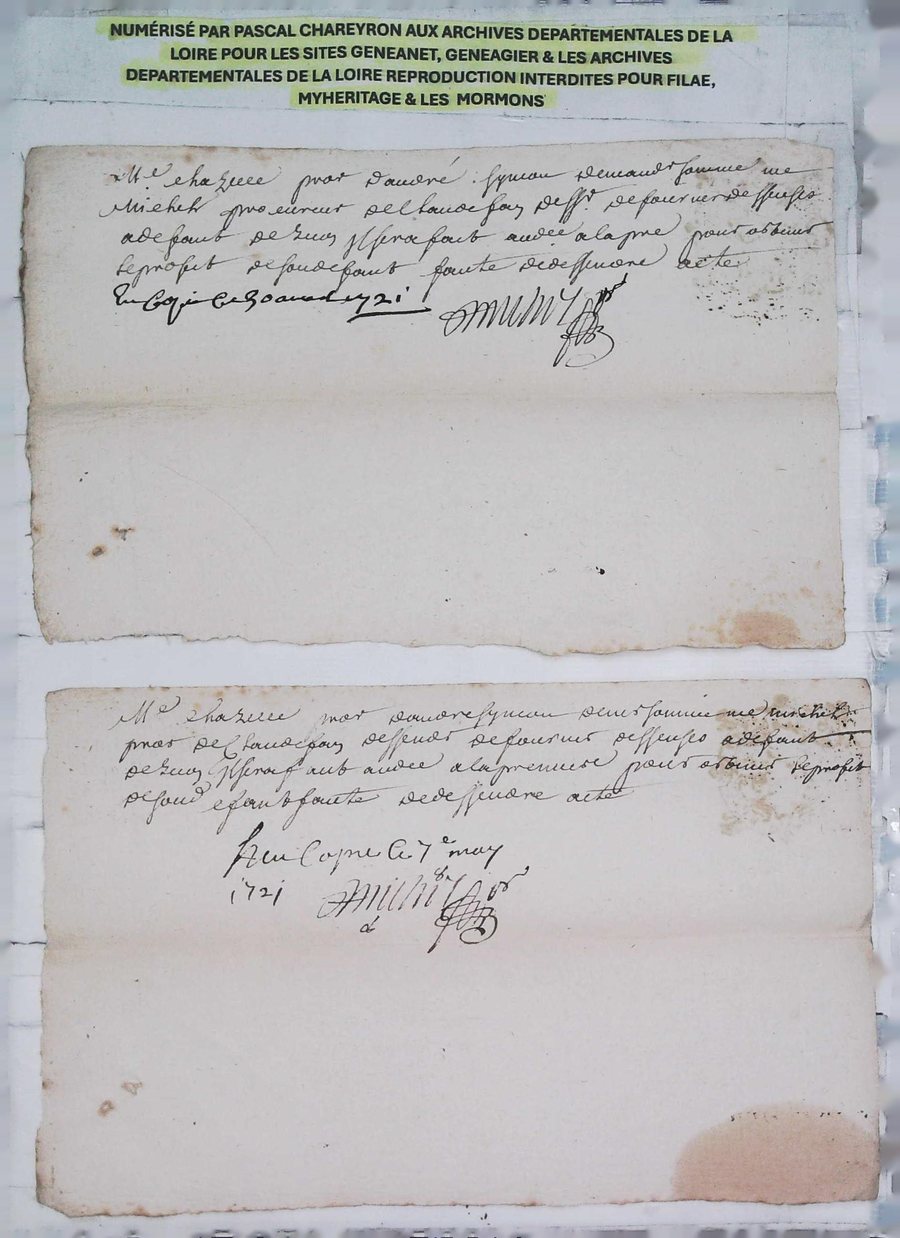 NUMÉRISÉ PAR PASCAL CHAREYRON AUX ARCHIVES DEPARTEMENTALES DE LA
LOIRE POUR LES SITES GENEANET, GENEAGIER & LES ARCHIVES
DEPARTEMENTALES DE LA LOIRE REPRODUCTION INTERDITES POUR FILAE,
MYHERITAGE & LES MORMONS
Me chazelle pror dandré symon demandr somme me
Michel procureur de Claude fay deffr de fournir deffenses
a defaut de quoy il sera fait audce a la pre pour obtenir
le profit de son defaut faute de deffendre acte
Eu Copie Ce avril 1721
Michel pr
Me chazelle pror dandre symon demr somme me michel
pror de Claude fay deffendr de fournir deffenses a defaut
de quoy il sera fait audce a la premiere pour obtenir le profit
de son defaut faute de deffendre acte
Eeu Copie Ce 7e may
1721 Michel pr